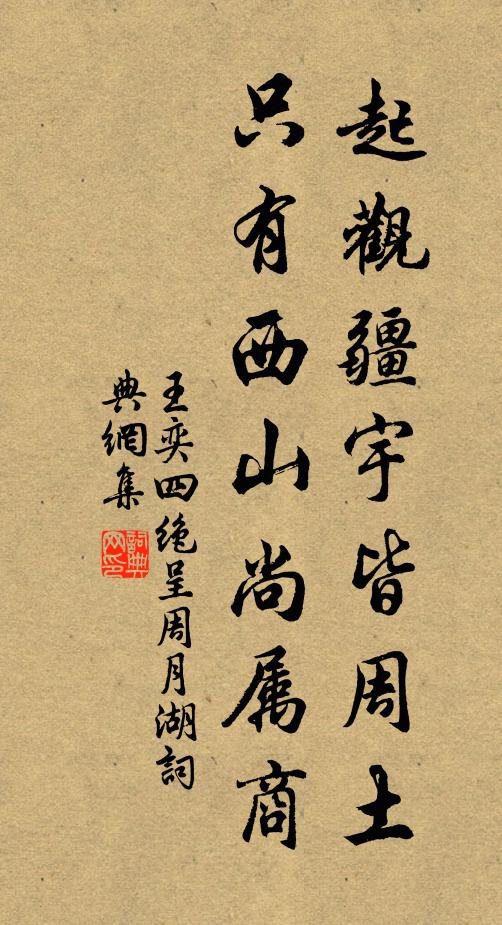 起觀疆宇皆周土
只有西山尚属商
王奕四绝呈周月湖詞
典網集
詞典网印